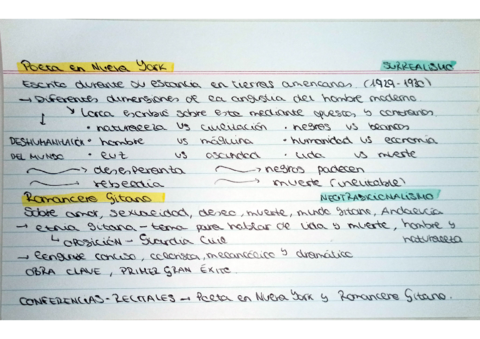 Poeta en Nueva York SURREALISMO
Escrito durante su estancia en tierras americanas (1929-1930)
→ Diferentes dimensiones de la angustia del hombre moderno
↓ ↳ Lorca escribió sobre esta mediante opuestos y contrarios
· naturaleza vs civilización · negros vs blancos
DESHUMANIZACIÓN · hombre vs máquina · humanidad vs economía
DEL MUNDO · luz vs oscuridad · vida vs muerte
desesperanza → negros padecen
rebeldía → muerte (inevitable)
Romancero Gitano NEOTRADICIONALISMO
Sobre amor, sexualidad, deseo, muerte, mundo gitano, Andalucía
→ etnia gitana - tema para hablar de vida y muerte, hombre y
↳ oposición - Guardia Civil naturaleza
→ lenguaje conciso, colorista, melancólico y dramático
OBRA CLAVE, PRIMER GRAN ÉXITO.
CONFERENCIAS-RECITALES → Poeta en Nueva York y Romancero Gitano.